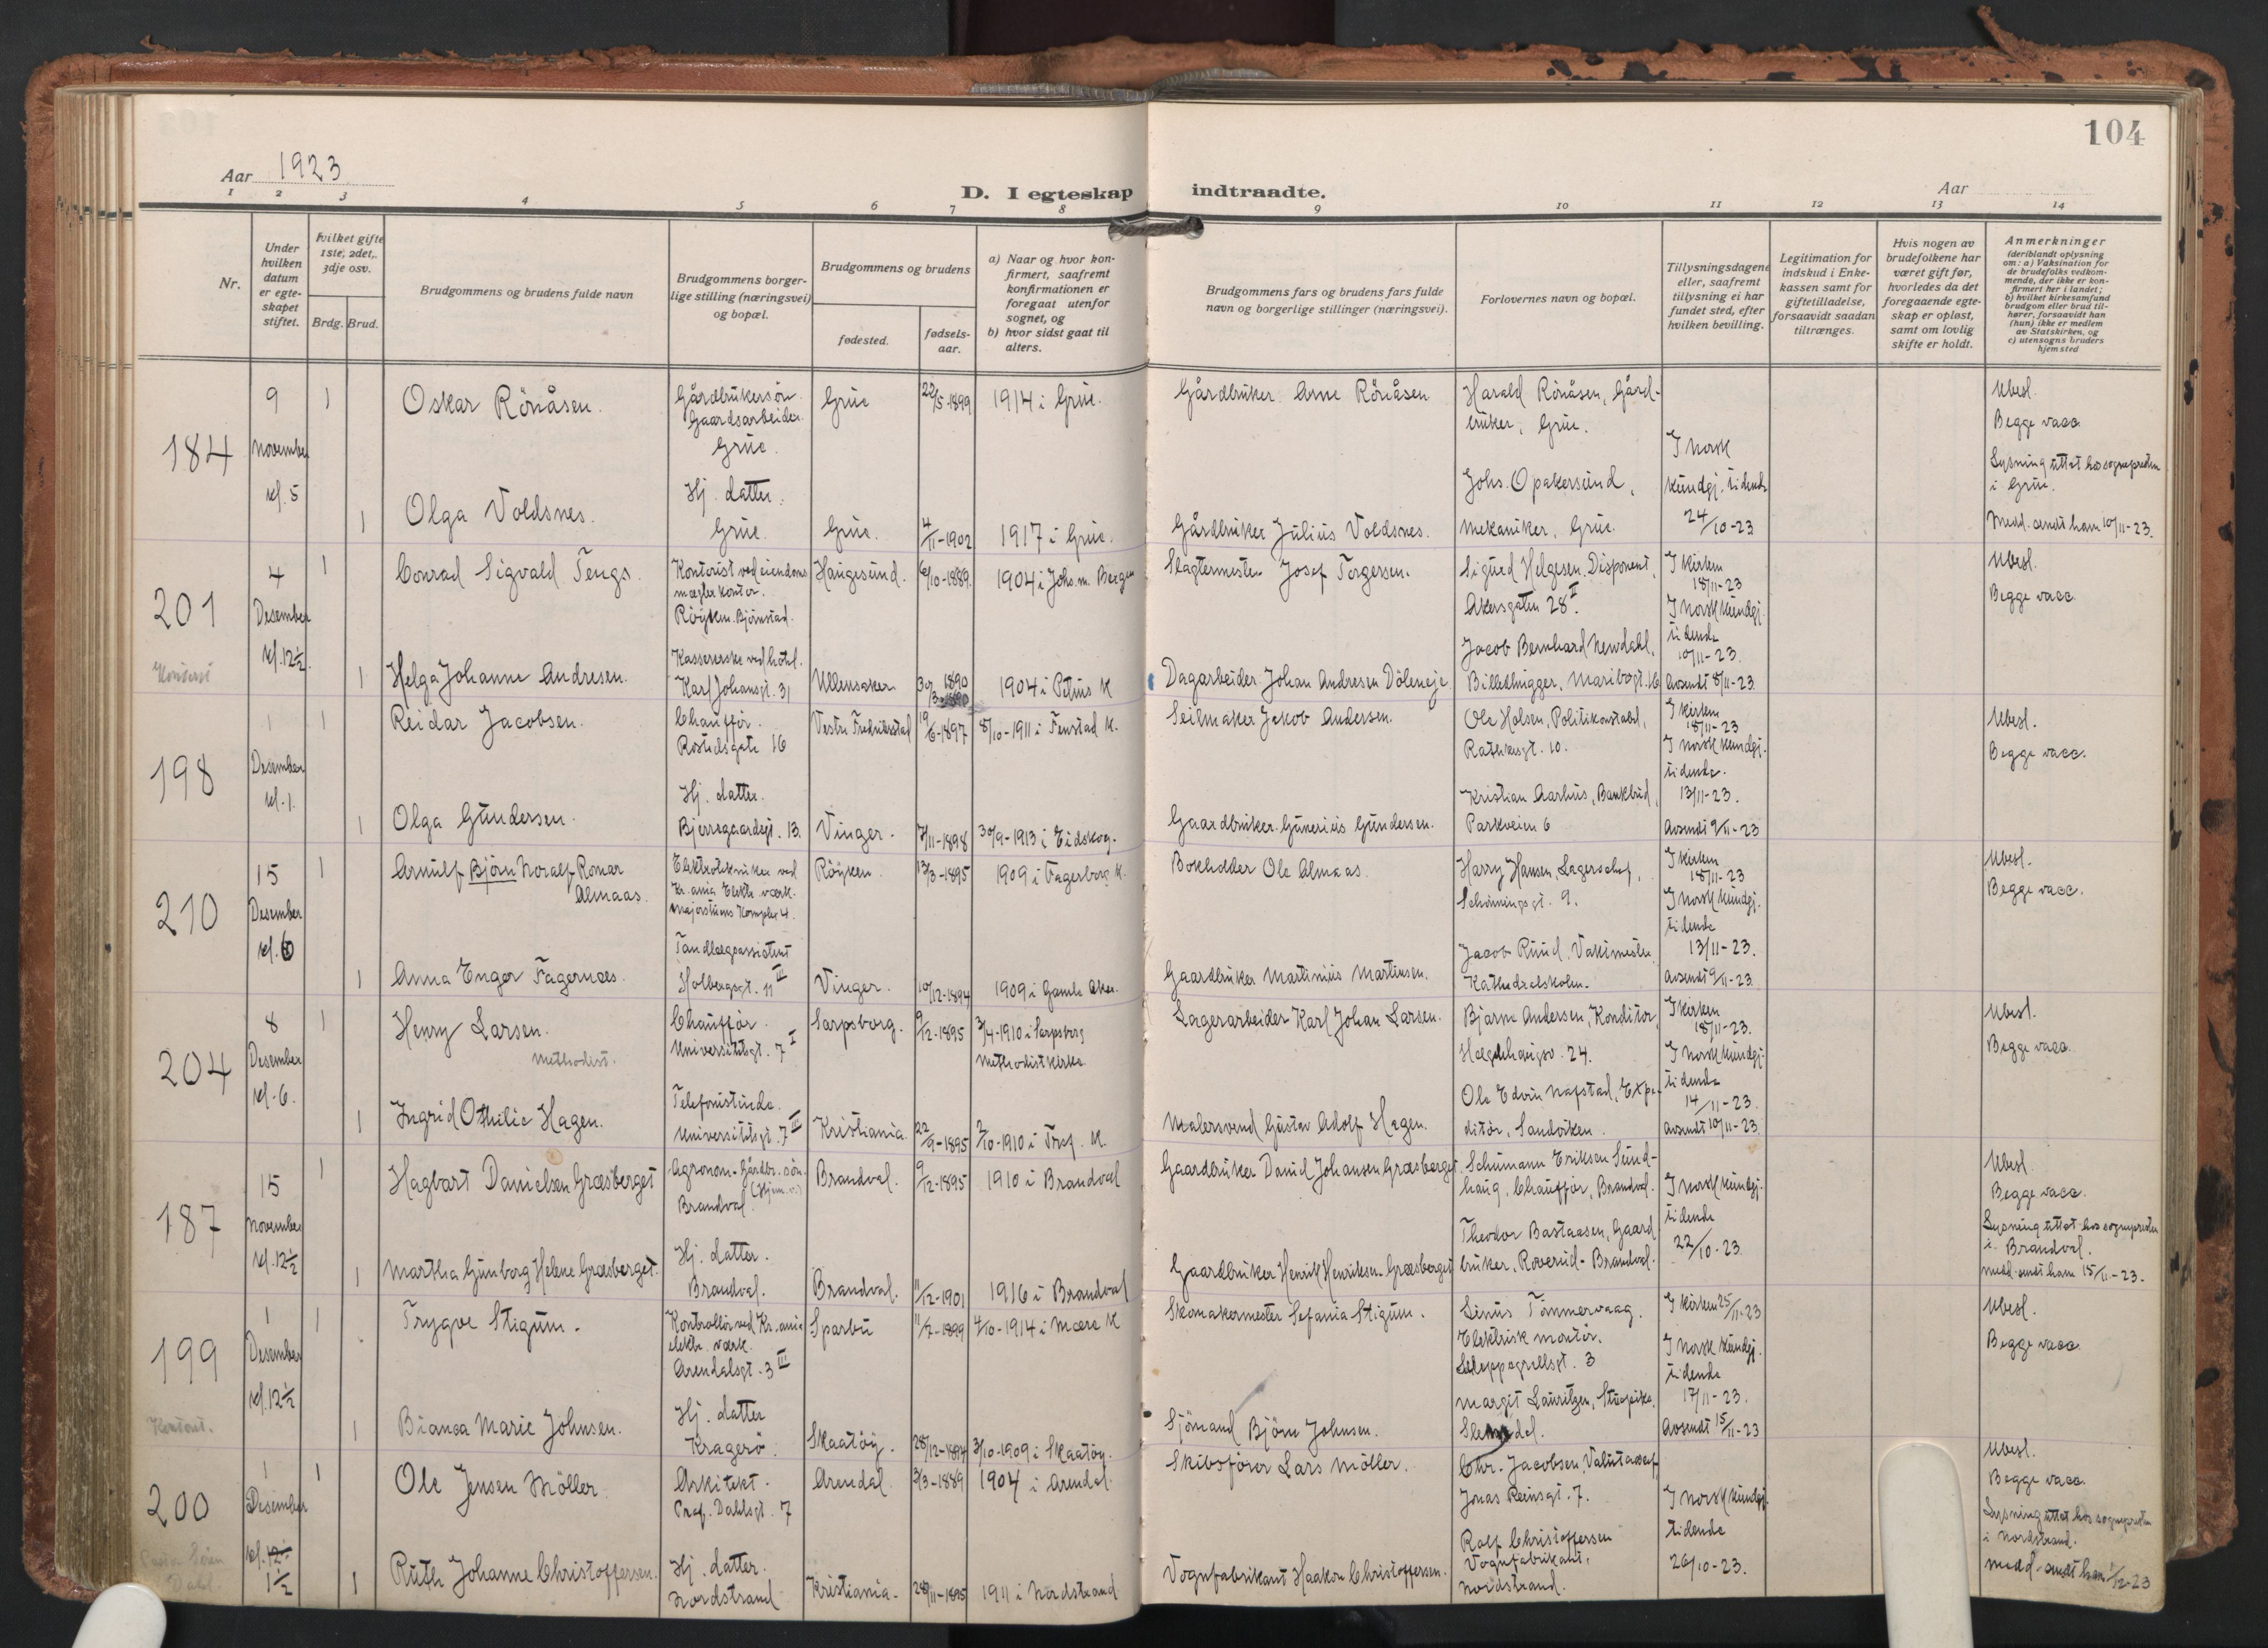 104
Aar 1923
D. I egteskap indtraadte.
Aar
1 2 3 4 5 6 7 8 9 10 11 12 13 14
Nr.
Under hvilken datum er egteskapet stiftet.
Hvilket gifte 1ste, 2det, 3dje osv.
Brdg. Brud.
Brudgommens og brudens fulde navn
Brudgommens borgerlige stilling (næringsvei) og bopæl.
Brudgommens og brudens
fødested.
fødselsaar.
a) Naar og hvor konfirmert, saafremt konfirmationen er foregaat utenfor sognet, og
b) hvor sidst gaat til alters.
Brudgommens fars og brudens fars fulde navn og borgerlige stillinger (næringsvei).
Forlovernes navn og bopæl.
Tillysningsdagene eller, saafremt tillysning ei har fundet sted, efter hvilken bevilling.
Legitimation for indskud i Enkekassen samt for giftetilladelse, forsaavidt saadan tiltrænges.
Hvis nogen av brudefolkene har været gift før, hvorledes da det foregaaende egteskap er opløst, samt om lovlig skifte er holdt.
Anmerkninger (deriblandt oplysning om: a) Vaksination for de brudefolks vedkommende, der ikke er konfirmert her i landet; b) hvilket kirkesamfund brudgom eller brud tilhører, forsaavidt han (hun) ikke er medlem av Statskirken, og c) utensogns bruders hjemsted
184
9 November kl. 5
1 Oskar Rönåsen.
Gårdbrukersøn. Gaardsarbeider. Grue.
Grue 22/5-1899 1914 i Grue.
Gårdbruker Arne Rönåsen
Harald Rönåsen, Gårdbruker, Grue.
Johs. Opakersund, mekaniker, Grue.
I Norsk kundgj. tidende 24/10-23
Ubesl.
Begge vacc.
Lysning uttat hos sognepresten i Grue.
Medd. sendt ham 10/11-23.
1 Olga Voldsnes.
Hj. datter. Grue.
Grue. 4/11-1902 1917 i Grue.
Gårdbruker Julius Voldsnes.
201
4 Desember kl. 12½.
1 Conrad Sigvald Tengs.
Kontorist ved eiendomsmægler kontor. Röyken. Björnstad.
Haugesund. 6/10-1889. 1904 i Johs. m. Bergen
Slagtermester Josef Torgersen.
Sigurd Helgesen. Disponent, Akersgaten 28 II.
Jacob Bernhard Newdahl, Billethugger, Maribogt. 16
I kirken 18/11-23
I norsk kundgj. tidende 10/11-23.
Avsendt 8/11-23.
Ubesl.
Begge vacc.
1 Helga Johanne Andresen.
Kassererske ved hotel. Karl Johansgt. 31
Ullensaker 30/3 1890 1904 i Petrus K
Dagarbeider Johan Andresen Döleneje
198
1 Desember kl. 1.
1 Reidar Jacobsen.
Chauffør. Rostedsgate 16
Vestre Fredrikstad 19/6-1897 8/10-1911 i Fenstad K.
Seilmaker Jakob Andersen.
Ole Holsen, Politikonstabel, Rathkesgt. 10.
Kristian Aarhus, Bankbud, Parkveien 6
I kirken 18/11-23
I norsk kundgj. tidende. 13/11-23.
Avsendt 9/11-23
Ubesl.
Begge vacc.
1 Olga Gundersen.
Hj. datter. Bjerregaardsgt. 13.
Vinger. 7/11-1898 30/9-1913 i Eidskog.
Gaardbruker Gunerius Gundersen.
210
15 Desember kl. 6
1 Arnulf Björn Noralf Ronar Almaas.
Elektrotekniker ved Kr.ania Elektr. værk. Majorstuens Komplex 4.
Röyken. 13/3-1895 1909 i Fagerborg K.
Bokholder Ole Almaas.
Harry Hansen, Lagerschef, Schöningsgt. 9.
Jacob Ruud, Vaktmester, Kathedralskolen.
I kirken 18/11-23
I Norsk kundgj. tidende 13/11-23.
Avsendt 9/11-23.
Ubesl.
Begge vacc.
1 Anna Enger Fagernæs.
Tandlægeassistent Holbergsgt. 11 III
Vinger. 10/12-1894 1909 i Gamle Aker.
Gaardbruker Martinius Martinsen.
204
8 Desember kl. 6.
1 Henry Larsen.
Methodist.
Chauffør. Universitetsgt. 7 I
Sarpsborg. 9/12-1895 3/4-1910 i Sarpsborg Methodistkirke.
Lagerarbeider Karl Johan Larsen.
Bjarne Andersen, Konditor, Hægdehaugsv. 24.
Ole Edvin Nafstad, Expeditör, Sandviken.
I kirken 18/11-23.
I norsk kundgj. tidende 14/11-23.
Avsendt 10/11-23.
Ubesl.
Begge vacc.
1 Ingrid Othilie Hagen.
Telefonistinde. Universitetsgt. 7 III
Kristiania. 22/9-1895 2/10-1910 i Tref. K.
Malersvend Gustav Adolf Hagen.
187
15 November kl. 12½
1 Hagbart Danielsen Græsberget
Agronom. Gårdbr. søn. Brandval.
Brandval. 9/12-1895 1910 i Brandval
Gaardbruker Daniel Johansen Græsberget.
Schumann Eriksen Sundhaug, Chauffør, Brandval.
Theodor Bastaasen, Gaardbruker, Roverud - Brandval.
I Norsk kundgj. tidende 22/10-23.
Ubesl.
Begge vacc.
Lysning uttat hos sognepresten i Brandval.
Medd. sendt ham 15/11-23.
1 Martha Gunborg Helene Græsberget.
Hj. datter. Brandval.
Brandval. 11/12-1901 1916 i Brandval
Gaardbruker Henrik Henriksen Græsberget
199
1 Desember kl. 12½
1 Trygve Stigum.
Kontrollör ved Kr.ania elektr. værk. Arendalsgt. 3 III
Sparbu 11/7-1899 4/10-1914 i Mære K
Skomakermester Sefania Stigum.
Linus Tömmervaag. Elektrisk montør. Schleppegrellsgt. 3
Margit Lauritzen, Stuepike,
I kirken 25/11-23
I Norsk kundgj. tidende 17/11-23.
Avsendt 15/11-23
Ubesl.
Begge vacc.
Kontant.
1 Bianca Marie Johnsen.
Hj. datter Kragerö.
Skaatöy. 28/12-1894 3/10-1909 i Skaatöy.
Sjömand Björn Johnsen.
200
1 Desember kl. 1½
1 Ole Jensen Möller.
Arkitekt. Prof. Dahlsgt. 7
Arendal. 3/3-1889 1904 i Arendal.
Skibsfører Lars Möller.
Chr. Jacobsen, Jonas Reinsgt. 7.
Ralf Christoffersen Vognfabrikant, Nordstrand.
I Norsk kundgj. tidende 26/10-23.
Ubesl.
Begge vacc.
Lysning uttat hos sognepresten i Nordstrand.
Medd. sendt ham 1/12-23
1 Ruth Johanne Christoffersen.
Hj. datter. Nordstrand
Kristiania. 28/11-1895 1911 i Nordstrand
Vognfabrikant Haakon Christoffersen.